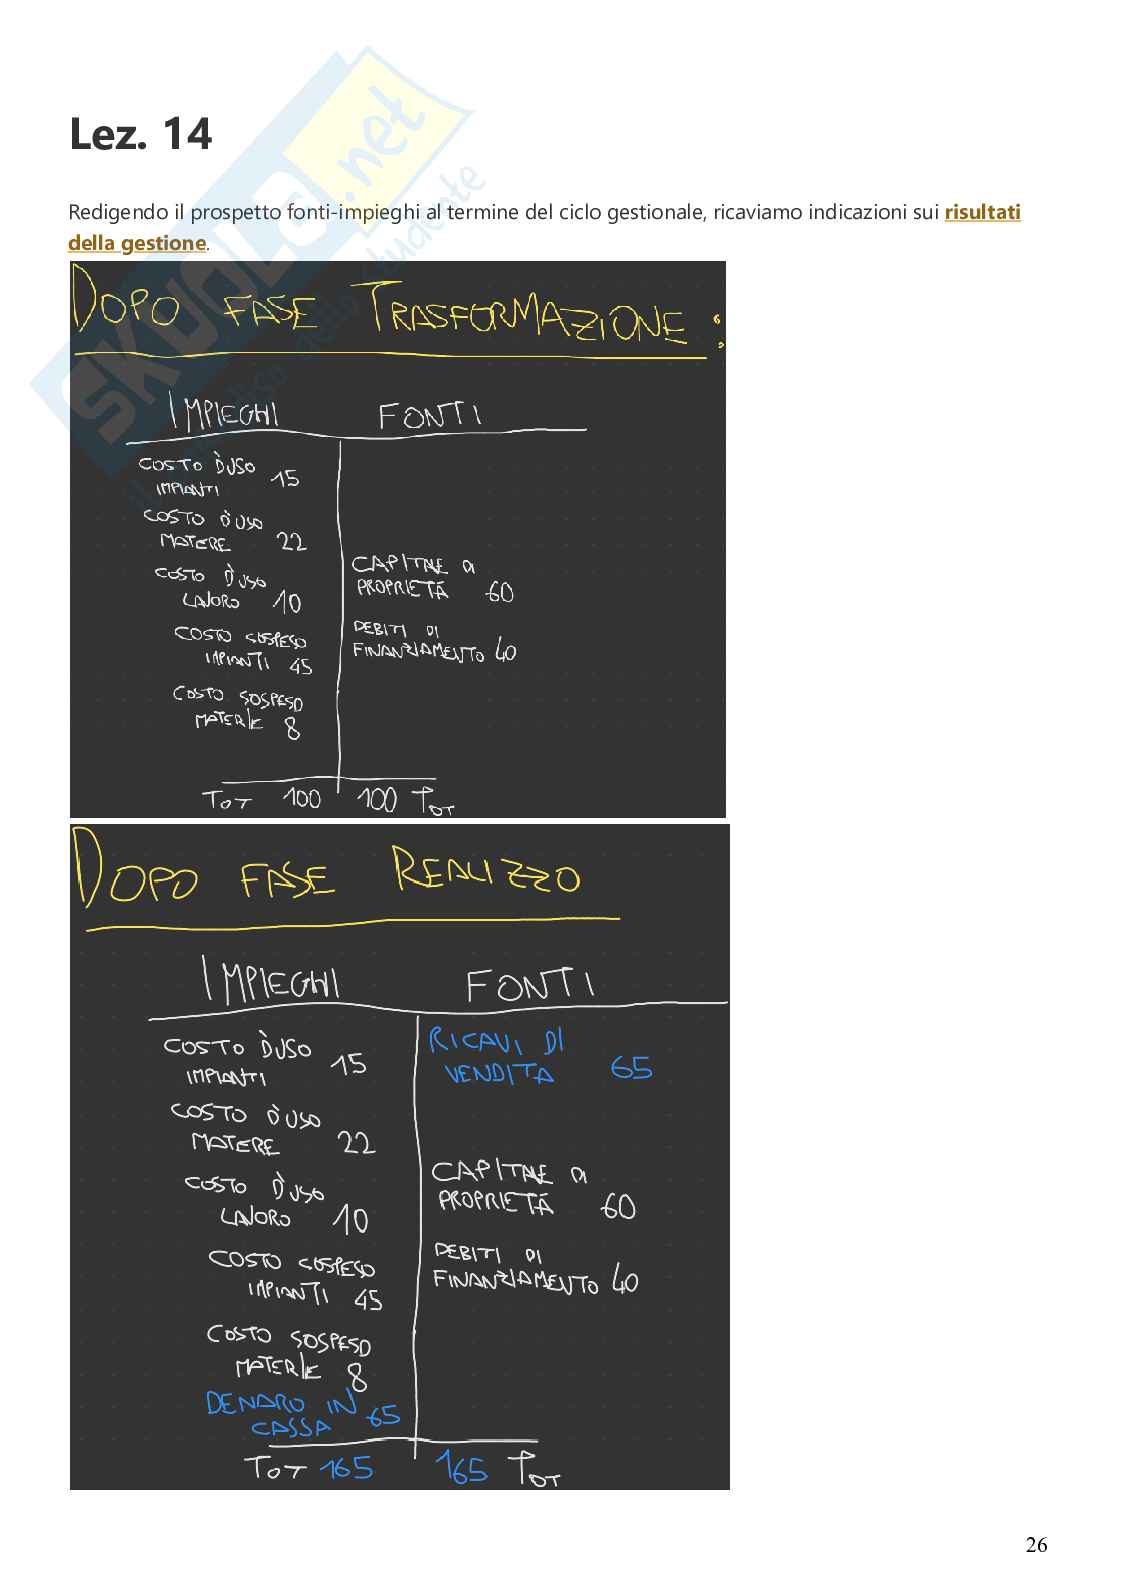 Lez. 14
Redigendo il prospetto fonti-impieghi al termine del ciclo gestionale, ricaviamo indicazioni sui risultati
della gestione.
DOPO FASE TRASFORMAZIONE :
IMPIEGHI FONTI
COSTO D'USO
IMPIANTI 15
COSTO D'USO
MATERE 22
COSTO D'USO
LAVORO 10
COSTO SOSPESO
IMPIANTI 45
COSTO SOSPESO
MATERIE 8
CAPITALE DI
PROPRIETÀ 60
DEBITI DI
FINANZIAMENTO 40
TOT 100 100 TOT
DOPO FASE REALIZZO
IMPIEGHI FONTI
COSTO D'USO
IMPIANTI 15
COSTO D'USO
MATERE 22
COSTO D'USO
LAVORO 10
COSTO SOSPESO
IMPIANTI 45
COSTO SOSPESO
MATERIE 8
DENARO IN
CASSA 65
RICAVI DI
VENDITA 65
CAPITALE DI
PROPRIETÀ 60
DEBITI DI
FINANZIAMENTO 40
TOT 165 165 TOT
26
SKUOLA.net